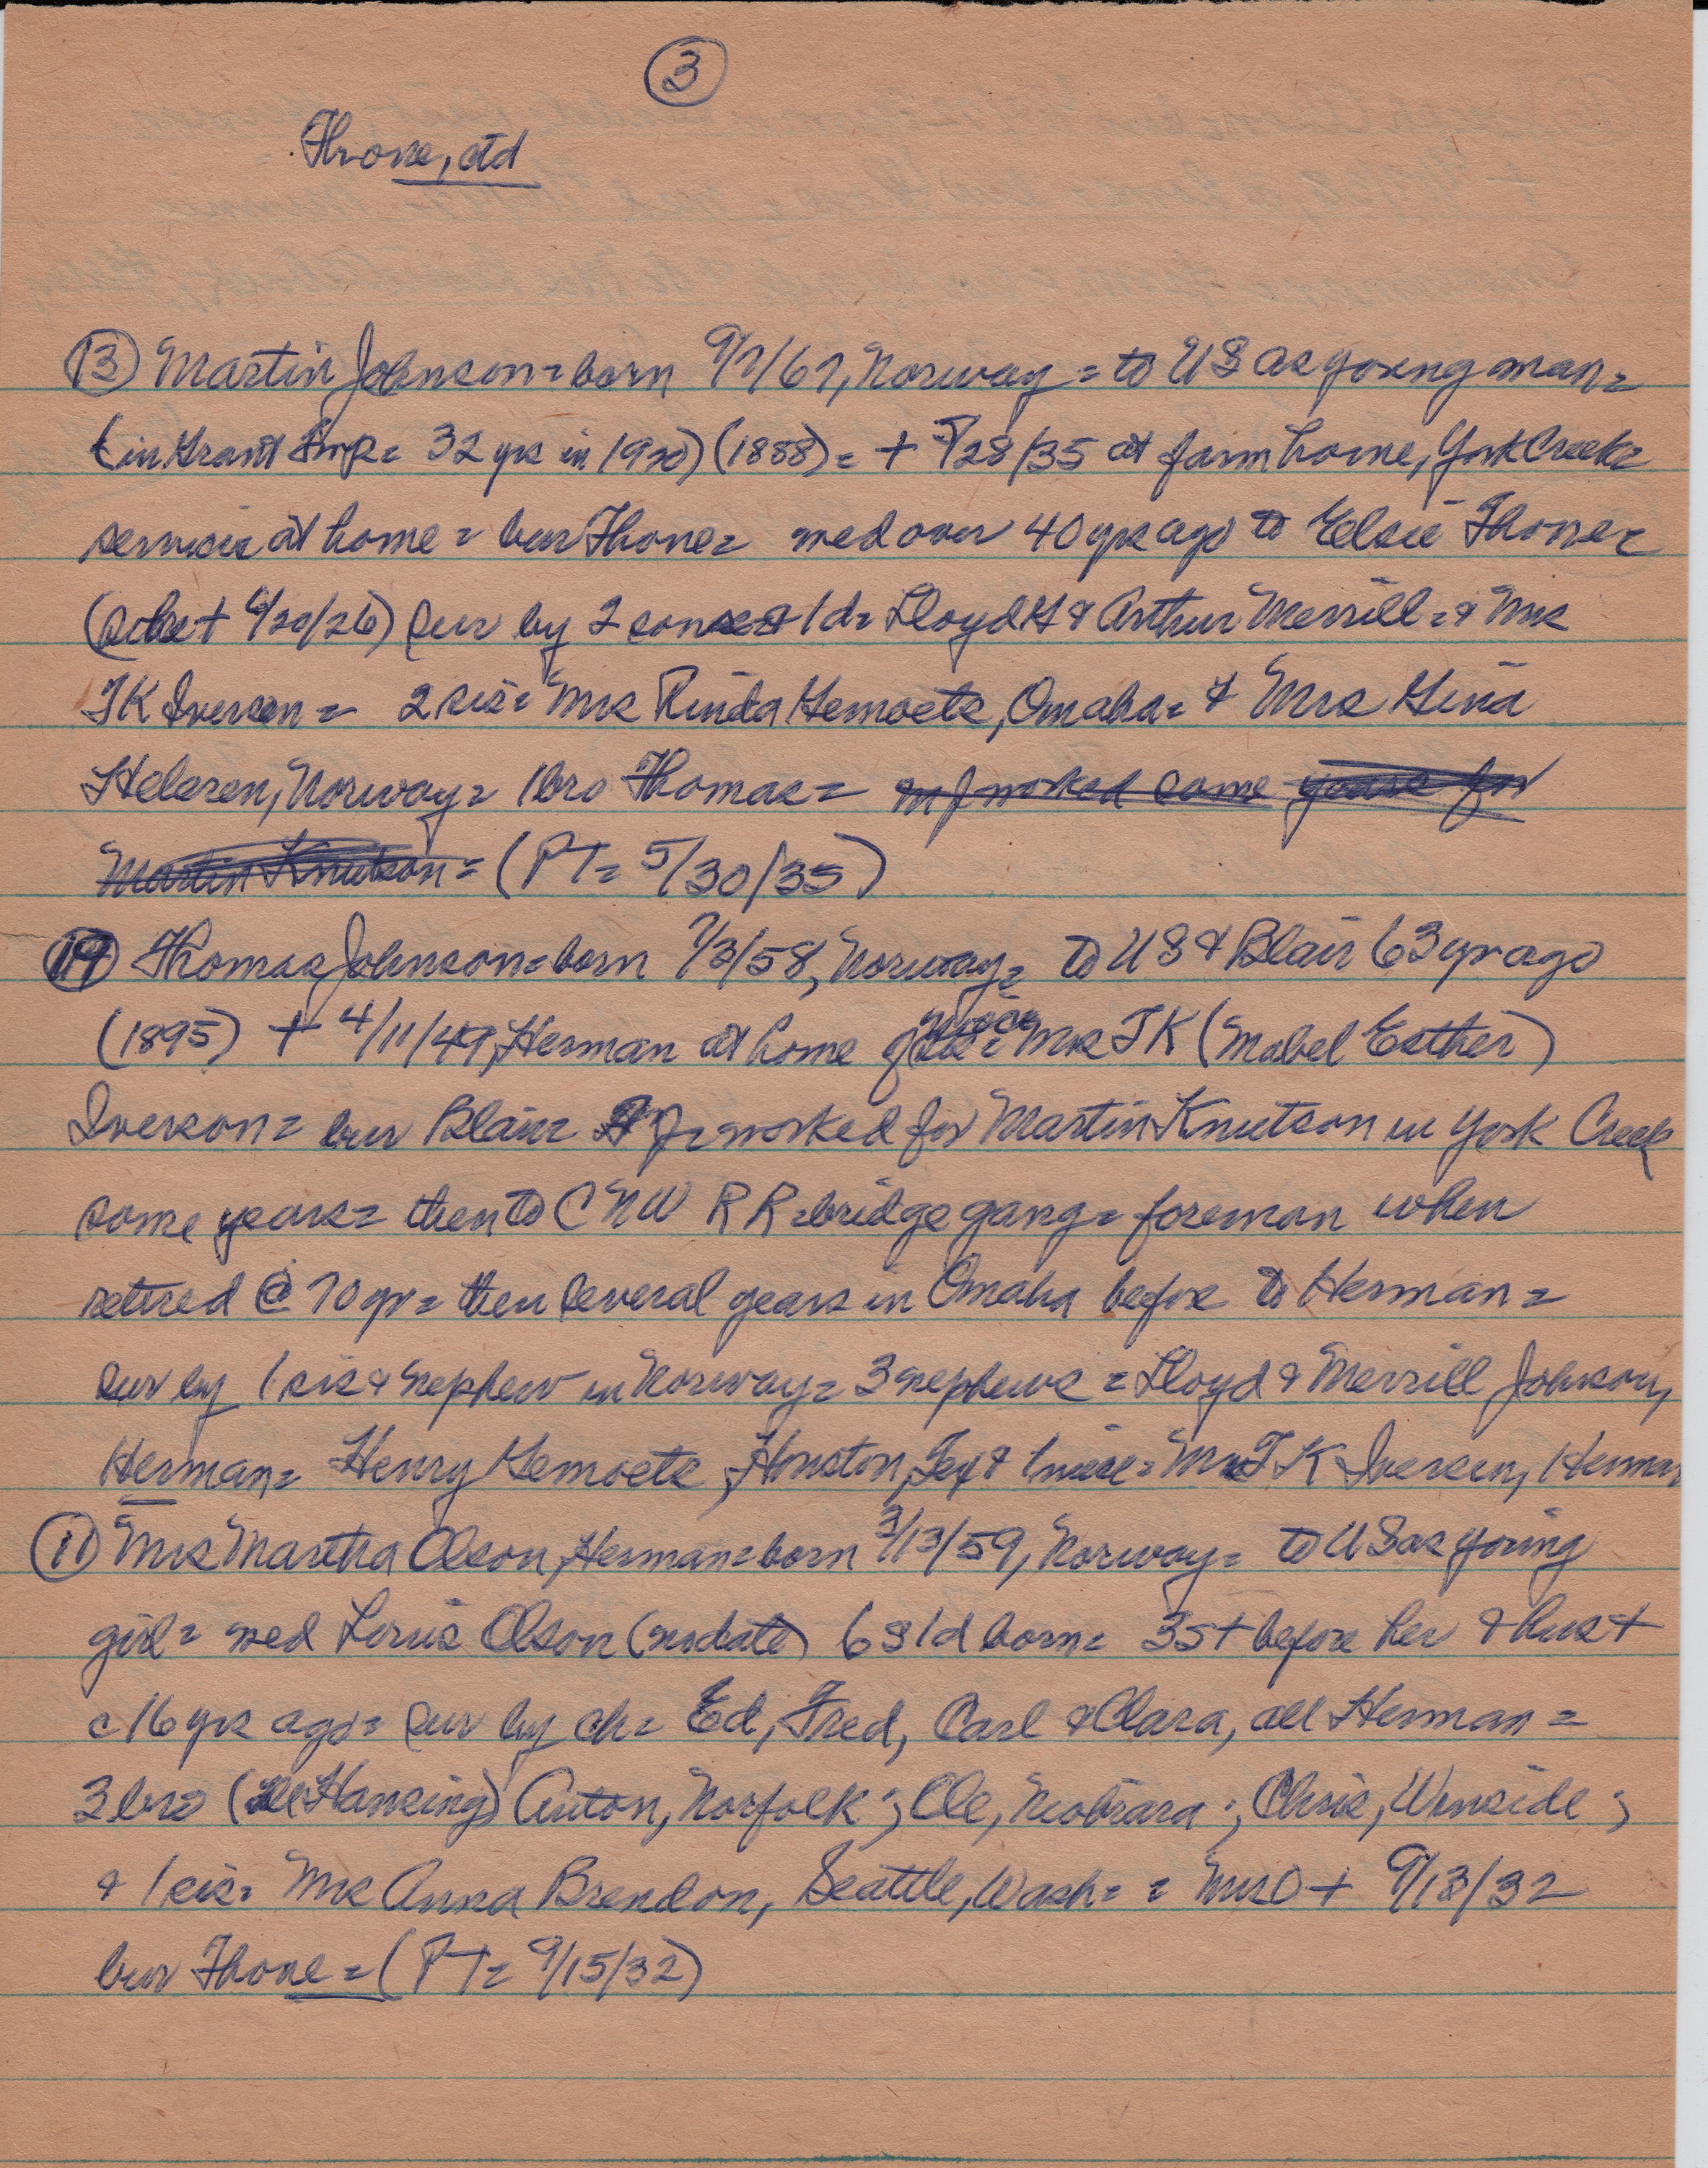 3
Thone, ctd
13 Martin Johnson = born 9/7/67, Norway = to US as young man =
(in Grant Twp = 32 yrs in 1920) (1888) = + 5/28/35 at farm home, York Creek =
services at home = bur Thone = med over 40 yrs ago to Elsie Thone =
(she + 6/20/26) sur by 2 sons & 1 d = Lloyd G & Arthur Merrill = & Mrs
TK Iversen = 2 sis = Mrs Rinda Gemoets, Omaha = & Mrs Gina
Helgren, Norway = 1 bro Thomas = mf worked some years for
Martin Knutson = (PT = 5/30/35)
14 Thomas Johnson = born 7/3/58, Norway = to US & Blair 63 yr ago
(1895) + 4/11/49, Herman at home of niece = Mrs TK (Mabel Esther)
Iverson = bur Blair = worked for Martin Knutson in York Creek
some years = then to CNW RR = bridge gang = foreman when
retired @ 70 yr = then several years in Omaha before to Herman =
sur by 1 sis & nephew in Norway = 3 nephews = Lloyd & Merrill Johnson,
Herman = Henry Gemoets, Houston, Tex & 1 niece = Mrs TK Iversen, Herman
11 Mrs Martha Olson, Herman = born 3/13/59, Norway = to US as young
girl = med Louis Olson (no date) 6 s 1 d born = 3 s + before her & hus +
c 16 yrs ago = sur by ch = Ed, Fred, Carl & Clara, all Herman =
3 bro (Hansing) Anton, Norfolk; Ole, Niobrara; Chris, Winside;
& 1 sis = Mrs Anna Brendon, Seattle, Wash = = Mrs O + 9/13/32
bur Thone = (PT = 9/15/32)